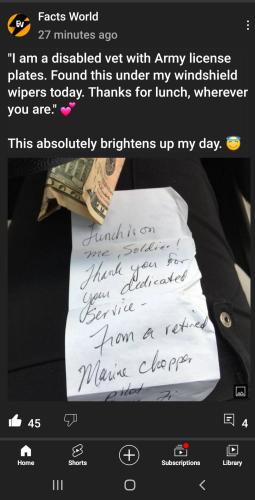 Facts World
27 minutes ago
"I am a disabled vet with Army license
plates. Found this under my windshield
wipers today. Thanks for lunch, wherever
you are." 💕
This absolutely brightens up my day. 😇
Lunch is on
me, Soldier!
Thank you for
your dedicated
service-
From a retired
Marine Chopper
pilot
45
4
Home
Shorts
Subscriptions
Library